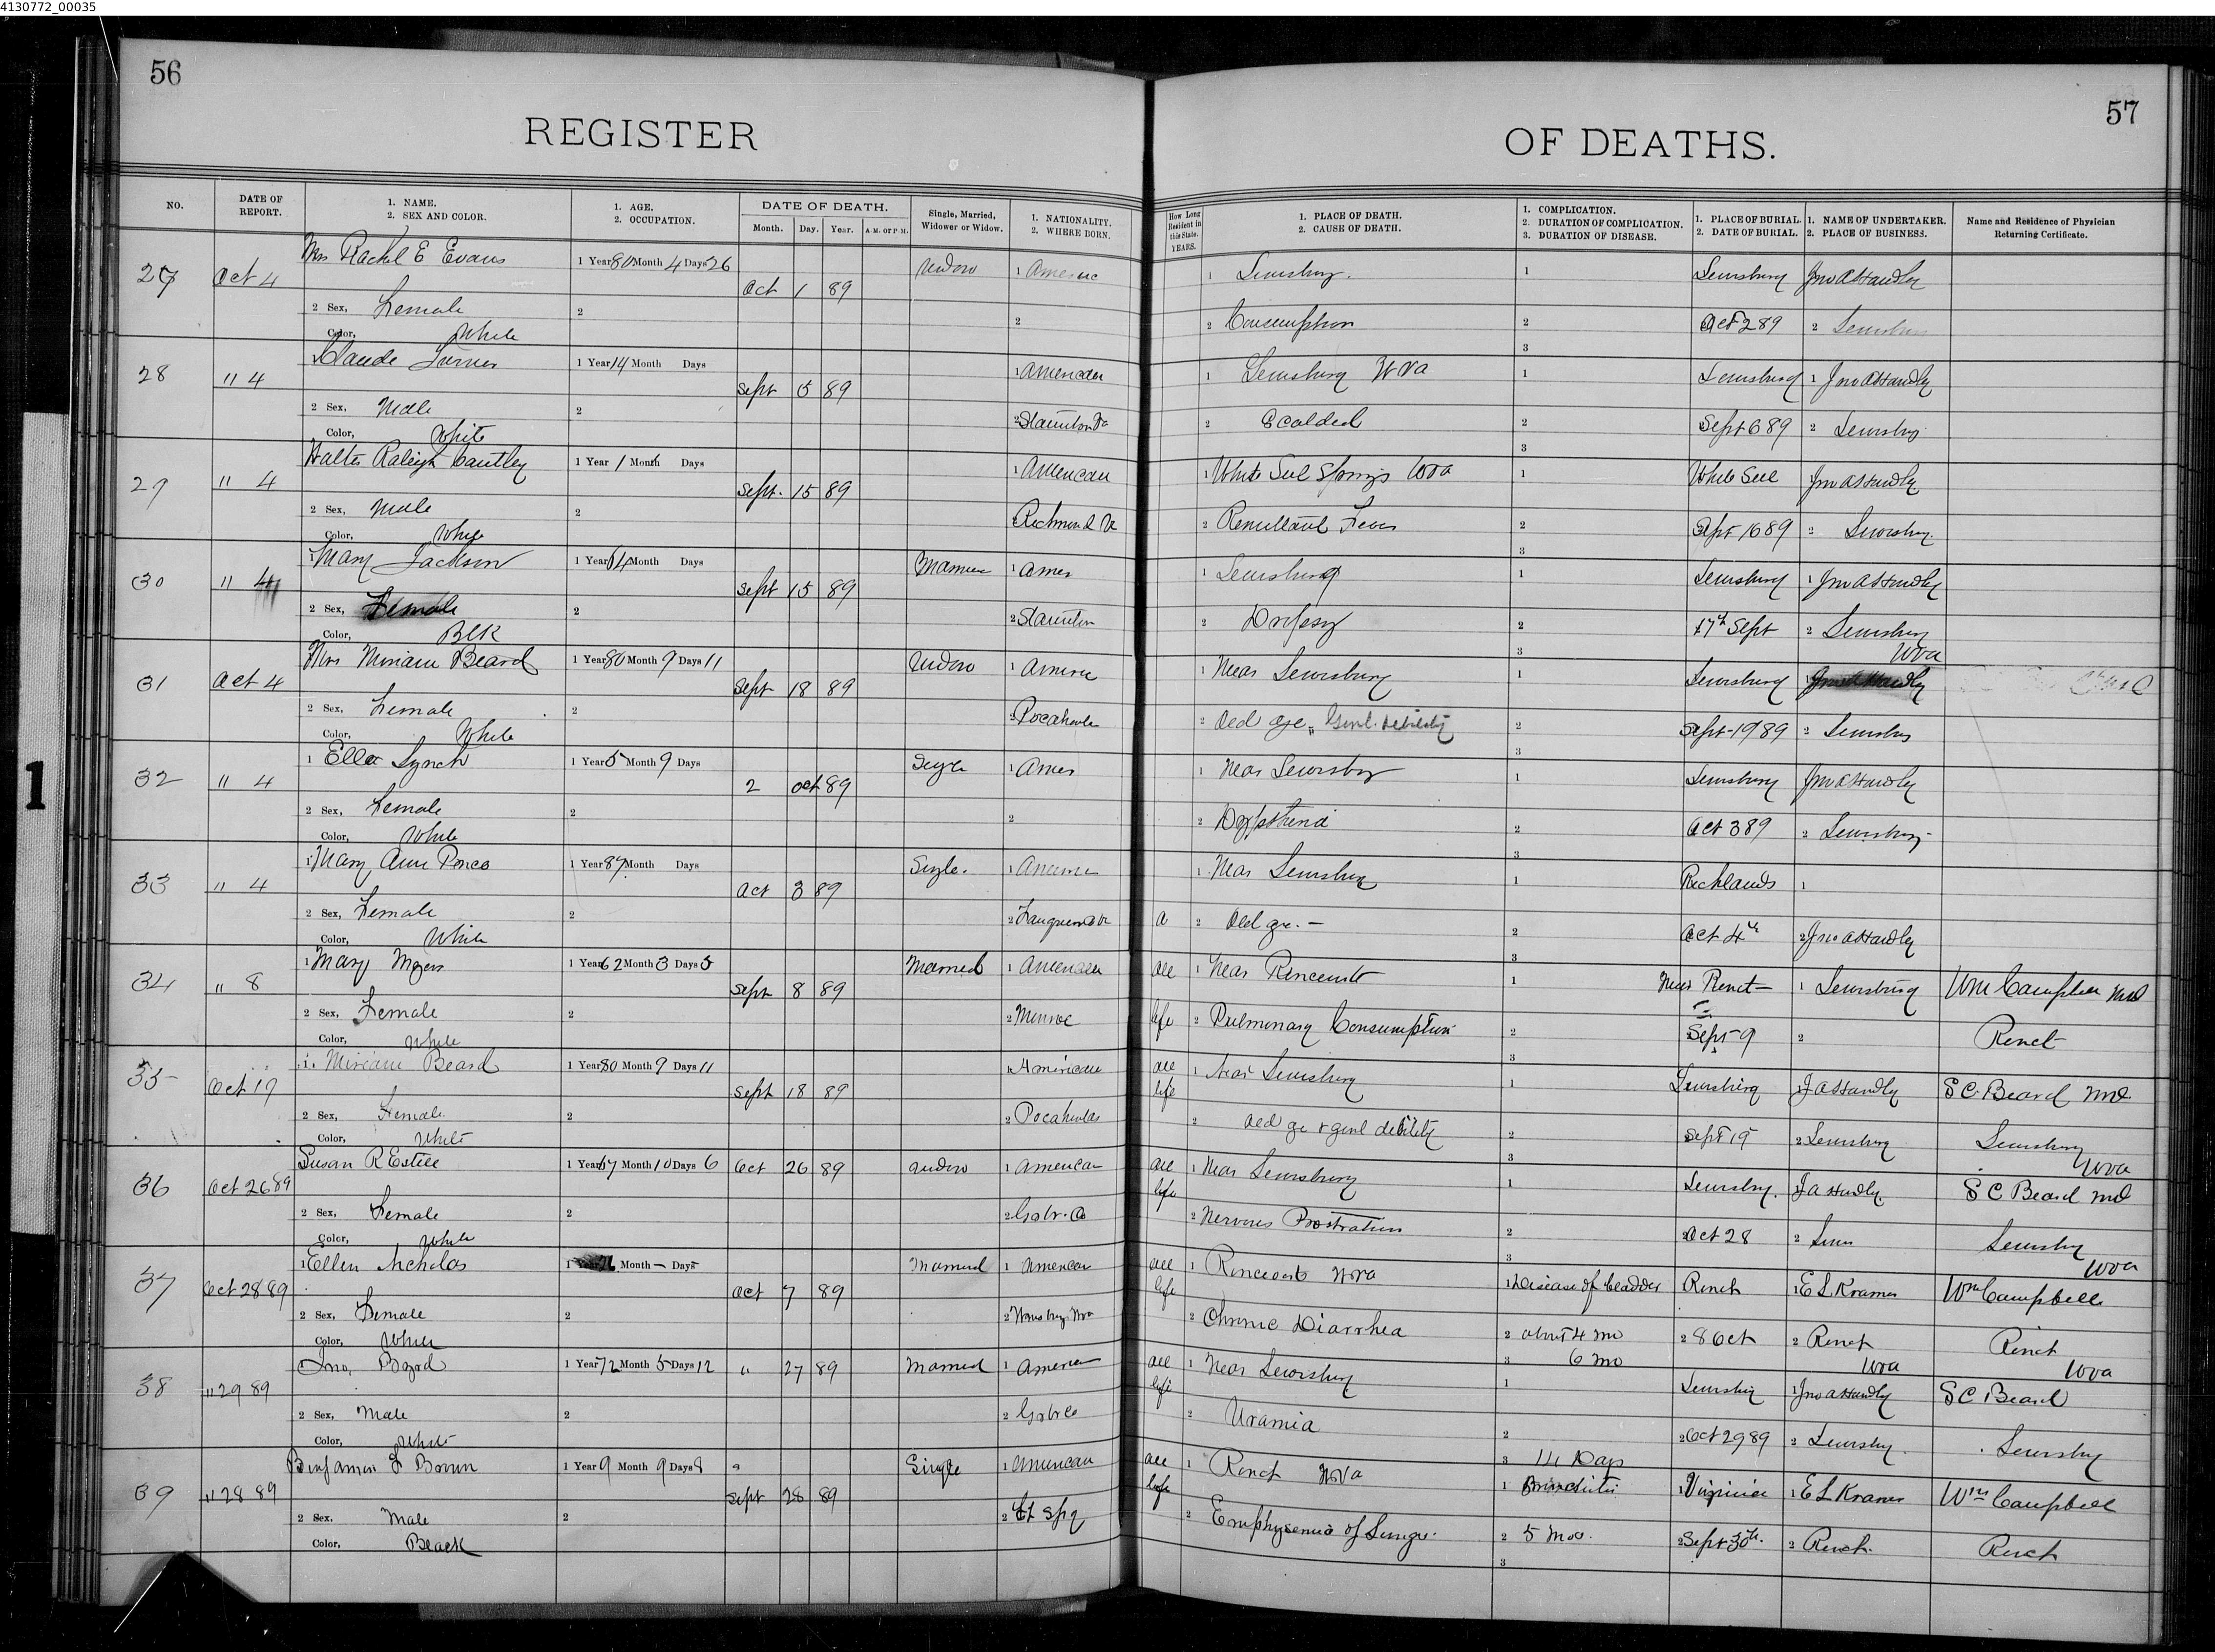 4130772_00035
56
57
REGISTER OF DEATHS.
NO.
DATE OF REPORT.
1. NAME. 2. SEX AND COLOR.
1. AGE. 2. OCCUPATION.
DATE OF DEATH.
Month. Day. Year. A.M. or P.M.
Single, Married, Widower or Widow.
1. NATIONALITY. 2. WHERE BORN.
How Long Resident in this State. YEARS.
1. PLACE OF DEATH. 2. CAUSE OF DEATH.
1. COMPLICATION. 2. DURATION OF COMPLICATION. 3. DURATION OF DISEASE.
1. PLACE OF BURIAL. 2. DATE OF BURIAL.
1. NAME OF UNDERTAKER. 2. PLACE OF BUSINESS.
Name and Residence of Physician Returning Certificate.
27 Oct 4 Mrs Rachel E Evans 1 Year 80 Month 4 Days 26 Oct 1 89 Widow 1 1 Lewisburg. 1 Lewisburg Jno A Handley
2 Sex, Female 2 2 2 Consumption 2 Oct 2 89 2 Lewisburg
Color, White 3
28 " 4 Claude Turner 1 Year 14 Month Days Sept 5 89 1 American 1 Lewisburg W Va 1 Lewisburg 1 Jno A Handley
2 Sex, Male 2 2 Staunton Va 2 Scalded 2 Sept 6 89 2 Lewisburg
Color, White 3
29 " 4 Walter Raleigh Cantley 1 Year 1 Month Days Sept. 15 89 1 American 1 White Sul Springs W Va 1 White Sul Jno A Handley
2 Sex, Male 2 Richmond Va 2 Remittant Fever 2 Sept 16 89 2 Lewisburg.
Color, White 3
30 " 4 1 Mary Jackson 1 Year 64 Month Days Sept 15 89 Married 1 Amer 1 Lewisburg 1 Lewisburg 1 Jno A Handley
2 Sex, Female 2 2 Staunton 2 Dropsy 2 17th Sept 2 Lewisburg
Color, Blk 3 W Va
31 Oct 4 Mrs Miriam Beard 1 Year 80 Month 9 Days 11 Sept 18 89 Widow 1 1 Near Lewisburg 1 Lewisburg Jno A Handley
2 Sex, Female 2 2 Pocahontas 2 Old age, Genl. debility 2 Sept 19/89 2 Lewisburg
Color, White 3
32 " 4 1 Ella Lynch 1 Year 5 Month 9 Days 2 Oct 89 Single 1 Amer 1 Near Lewisburg 1 Lewisburg Jno A Handley
2 Sex, Female 2 2 2 Dypstheria 2 Oct 3 89 2 Lewisburg
Color, White 3
33 " 4 1 Mary Ann 1 Year 87 Month Days Oct 3 89 Single. 1 1 Near Lewisburg 1 Richlands 1
2 Sex, Female 2 2 Fauquier Va a 2 Old age. — 2 Oct 4th 2 Jno A Handley
Color, White 3
34 " 8 1 Mary Myers 1 Year 62 Month 3 Days 5 Sept 8 89 Married 1 American all 1 Near Ronceverte 1 Near Ronct 1 Lewisburg Wm Campbell MD
2 Sex, Female 2 2 Monroe life 2 Pulmonary Consumption 2 Sept 9 2 Ronct
Color, White 3
35 Oct 19 1. Miriam Beard 1 Year 80 Month 9 Days 11 Sept 18 89 1 American all life 1 Near Lewisburg 1 Lewisburg J A Handley S C Beard MD
2 Sex, Female 2 2 Pocahontas 2 Old age & genl debility 2 Sept 19 2 Lewisburg Lewisburg
Color, White 3 W Va
36 Oct 26 89 Susan R Estill 1 Year 67 Month 10 Days 6 Oct 26 89 Widow 1 American all life 1 Near Lewisburg 1 Lewisburg. J A Handley. S C Beard MD
2 Sex, Female 2 2 Gobr. Co 2 Nervous Prostration 2 2 Oct 28 2 Lewis Lewisburg
Color, White 3 W Va
37 Oct 28 89 1 Ellen Nicholas 1 Year Month — Days Oct 7 89 Married 1 American all life 1 Ronceverte W Va 1 Disease of bladder Ronct 1 E L Kramer Wm Campbell
2 Sex, Female 2 2 2 Chronic Diarrhea 2 about 4 mo 2 8 Oct 2 Ronct Ronct
Color, White 3 6 mo W Va W Va
38 " 29 89 Jno, Bozard 1 Year 72 Month 5 Days 12 " 27 89 Married 1 American all life 1 Near Lewisburg 1 Lewisburg 1 Jno A Handley S C Beard
2 Sex, Male 2 2 Gobr Co 2 Uramia 2 2 Oct 29 89 2 Lewisburg. Lewisburg
Color, White 3 14 Days
39 " 28 89 Benjamin F Brown 1 Year 9 Month 9 Days 8 Sept 28 89 Single 1 American all life 1 Ronct W Va 1 Bronchitis 1 Virginia 1 E L Kramer Wm Campbell
2 Sex. Male 2 2 2 Emphysemia of Lungs. 2 5 Mos. 2 Sept 30th. 2 Ronct. Ronct
Color, Black 3
1